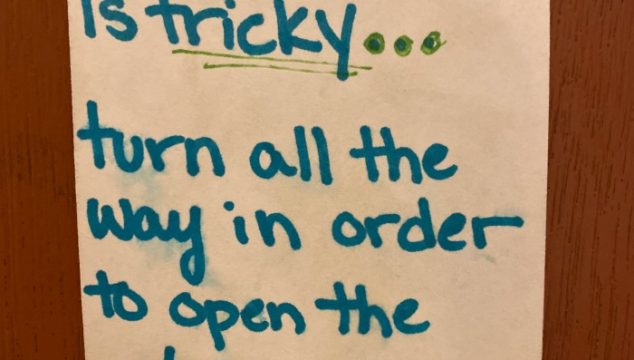 is tricky...
turn all the
way in order
to open the